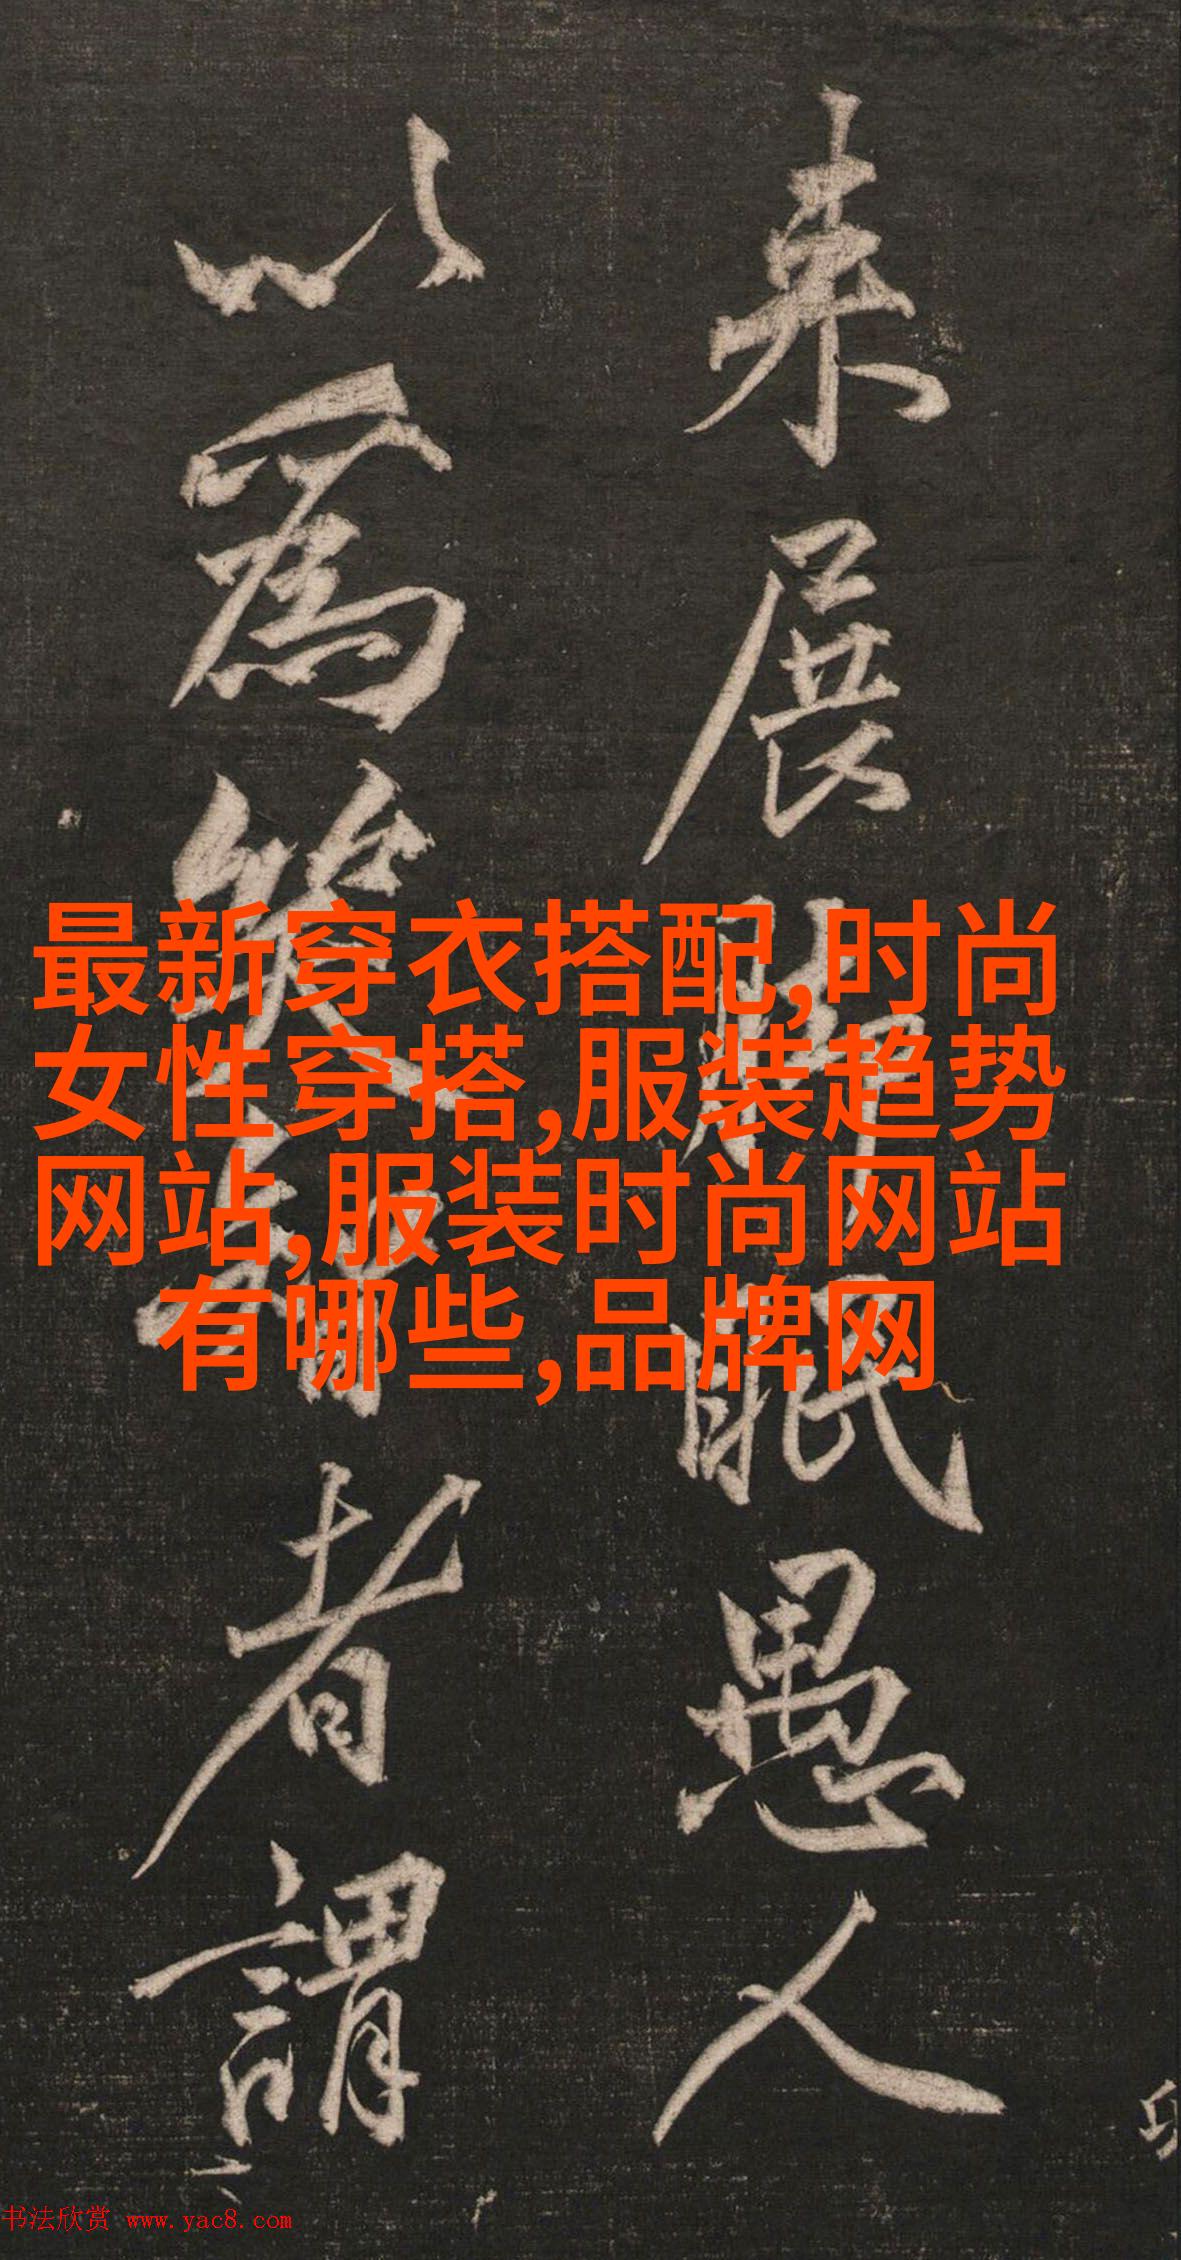 来展脚眠愚人
以為笑智者謂
最新穿衣搭配,时尚
女性穿搭,服装趋势
网站,服装时尚网站
有哪些,品牌网
书法欣赏 www.yac8.com